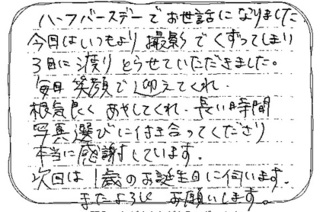 ハーフバースデーでお世話になりました
今日はいつもより撮影でくずってしまい
3日に渡りとらせていただきました。
毎日笑顔で迎えてくれ
根気良くあやしてくれ、長い時間
写真選びに付き合ってくださり
本当に感謝しています。
次回は1歳のお誕生日に伺います。
またよろしくお願いします。